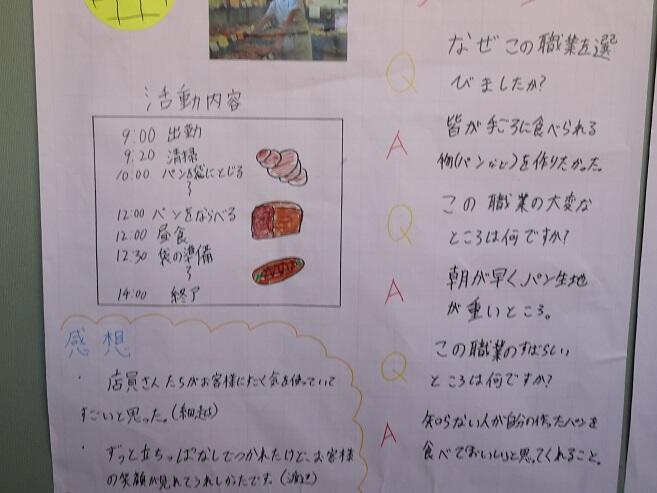 活動内容
9:00 出勤
9:20 清掃
10:00 パンを袋にとじる
〜
12:00 パンをならべる
12:00 昼食
12:30 袋の準備
〜
14:00 終了
感想
・店員さんたちがお客様にたく気を使っていて
すごいと思った。
・ずっと立ちっぱなしでつかれたけど、お客様
の笑顔が見れてうれしかったです。
Q なぜこの職業を選
びましたか?
A 皆が手ごろに食べられる
物(パンなど)を作りたかった。
Q この職業の大変な
ところは何ですか?
A 朝が早く、パン生地
が重いところ。
Q この職業のすばらしい
ところは何ですか?
A 知らない人が自分の作ったパンを
食べておいしいと思ってくれること。